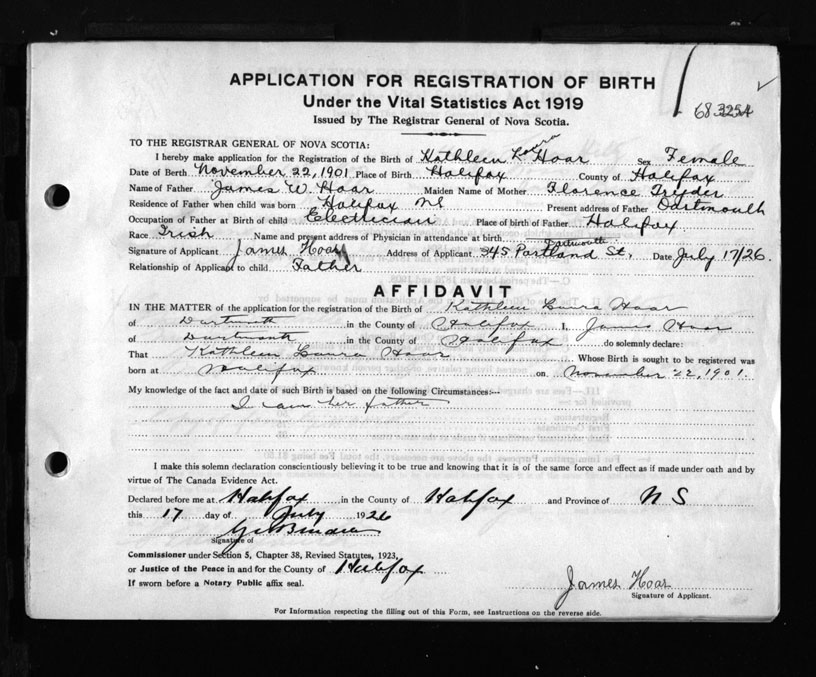 APPLICATION FOR REGISTRATION OF BIRTH
Under the Vital Statistics Act 1919
Issued by The Registrar General of Nova Scotia.
68 3254
TO THE REGISTRAR GENERAL OF NOVA SCOTIA:
Laura
I hereby make application for the Registration of the Birth of Kathleen L. Hoar Sex Female
Date of Birth November 22, 1901 Place of Birth Halifax County of Halifax
Name of Father James W. Hoar Maiden Name of Mother Florence Tryder
Residence of Father when child was born Halifax NS Present address of Father Dartmouth
Occupation of Father at Birth of child Electrician Place of birth of Father Halifax
Race Irish Name and present address of Physician in attendance at birth
Dartmouth
Signature of Applicant James Hoar Address of Applicant 245 Portland St, Date July 17/26.
Relationship of Applicant to child Father
AFFIDAVIT
IN THE MATTER of the application for the registration of the Birth of Kathleen Laura Hoar
of Dartmouth in the County of Halifax I, James Hoar
of Dartmouth in the County of Halifax do solemnly declare:
That Kathleen Laura Hoar Whose Birth is sought to be registered was
born at Halifax on November 22, 1901.
My knowledge of the fact and date of such Birth is based on the following Circumstances:—
I am her father
I make this solemn declaration conscientiously believing it to be true and knowing that it is of the same force and effect as if made under oath and by
virtue of The Canada Evidence Act.
Declared before me at Halifax in the County of Halifax and Province of N S
this 17 day of July 1926
Signature of
Commissioner under Section 5, Chapter 38, Revised Statutes, 1923,
or Justice of the Peace in and for the County of Halifax
If sworn before a Notary Public affix seal.
James Hoar
Signature of Applicant.
For Information respecting the filling out of this Form, see Instructions on the reverse side.